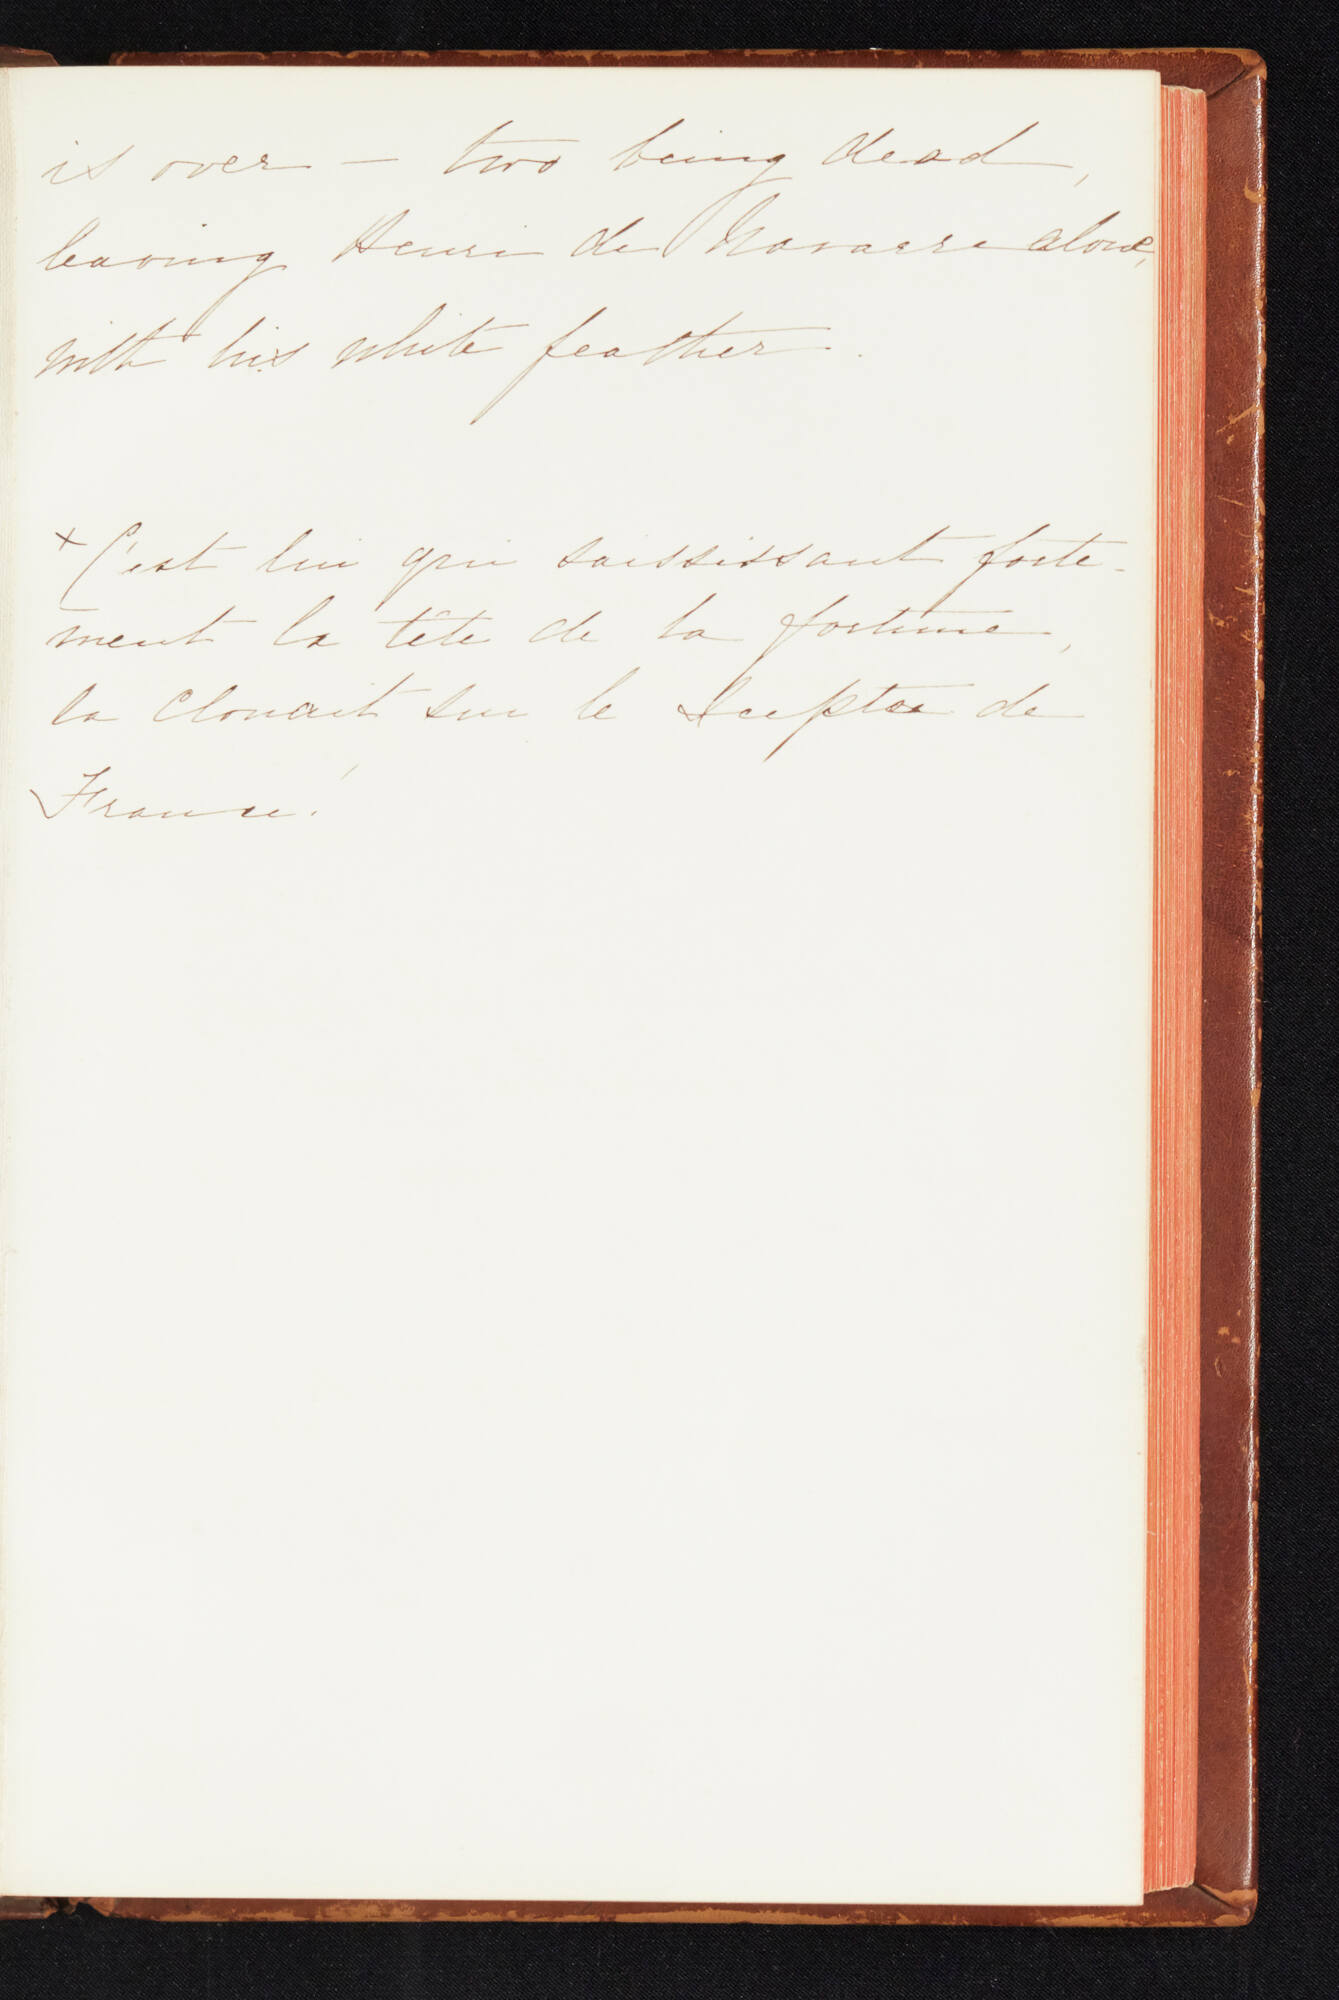 is over — two being dead,
leaving Henri de Navarre alone,
with his white feather.
x C'est lui qui saississant forte-
ment la tête de la fortune,
la clouait sur le sceptre de
France!